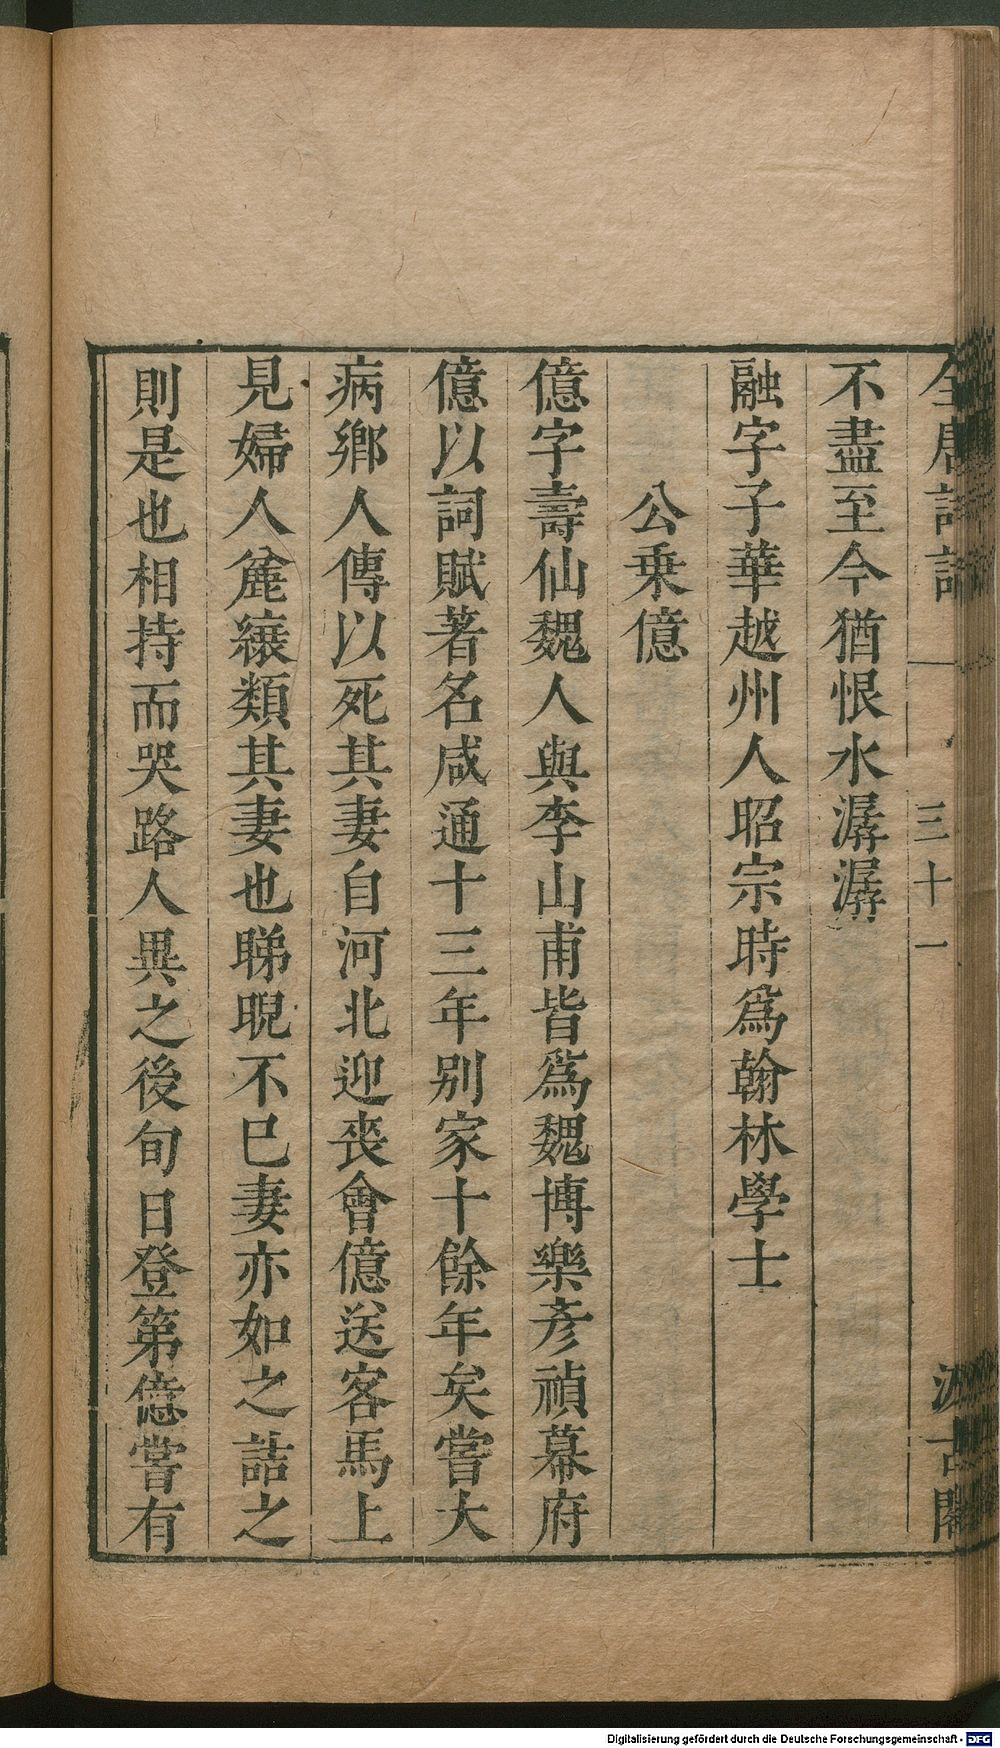 不盡至今猶恨水潺潺
融字子華越州人昭宗時爲翰林學士
公乗億
億字壽仙魏人與李山甫皆爲魏博樂彥禎幕府
億以詞賦著名咸通十三年别家十餘年矣嘗大
病鄉人傳以死其妻自河北迎喪會億送客馬上
見婦人麄縗類其妻也睇睨不巳妻亦如之詰之
則是也相持而哭路人異之後旬日登第億嘗有
三十一
Digitalisierung gefördert durch die Deutsche Forschungsgemeinschaft - DFG